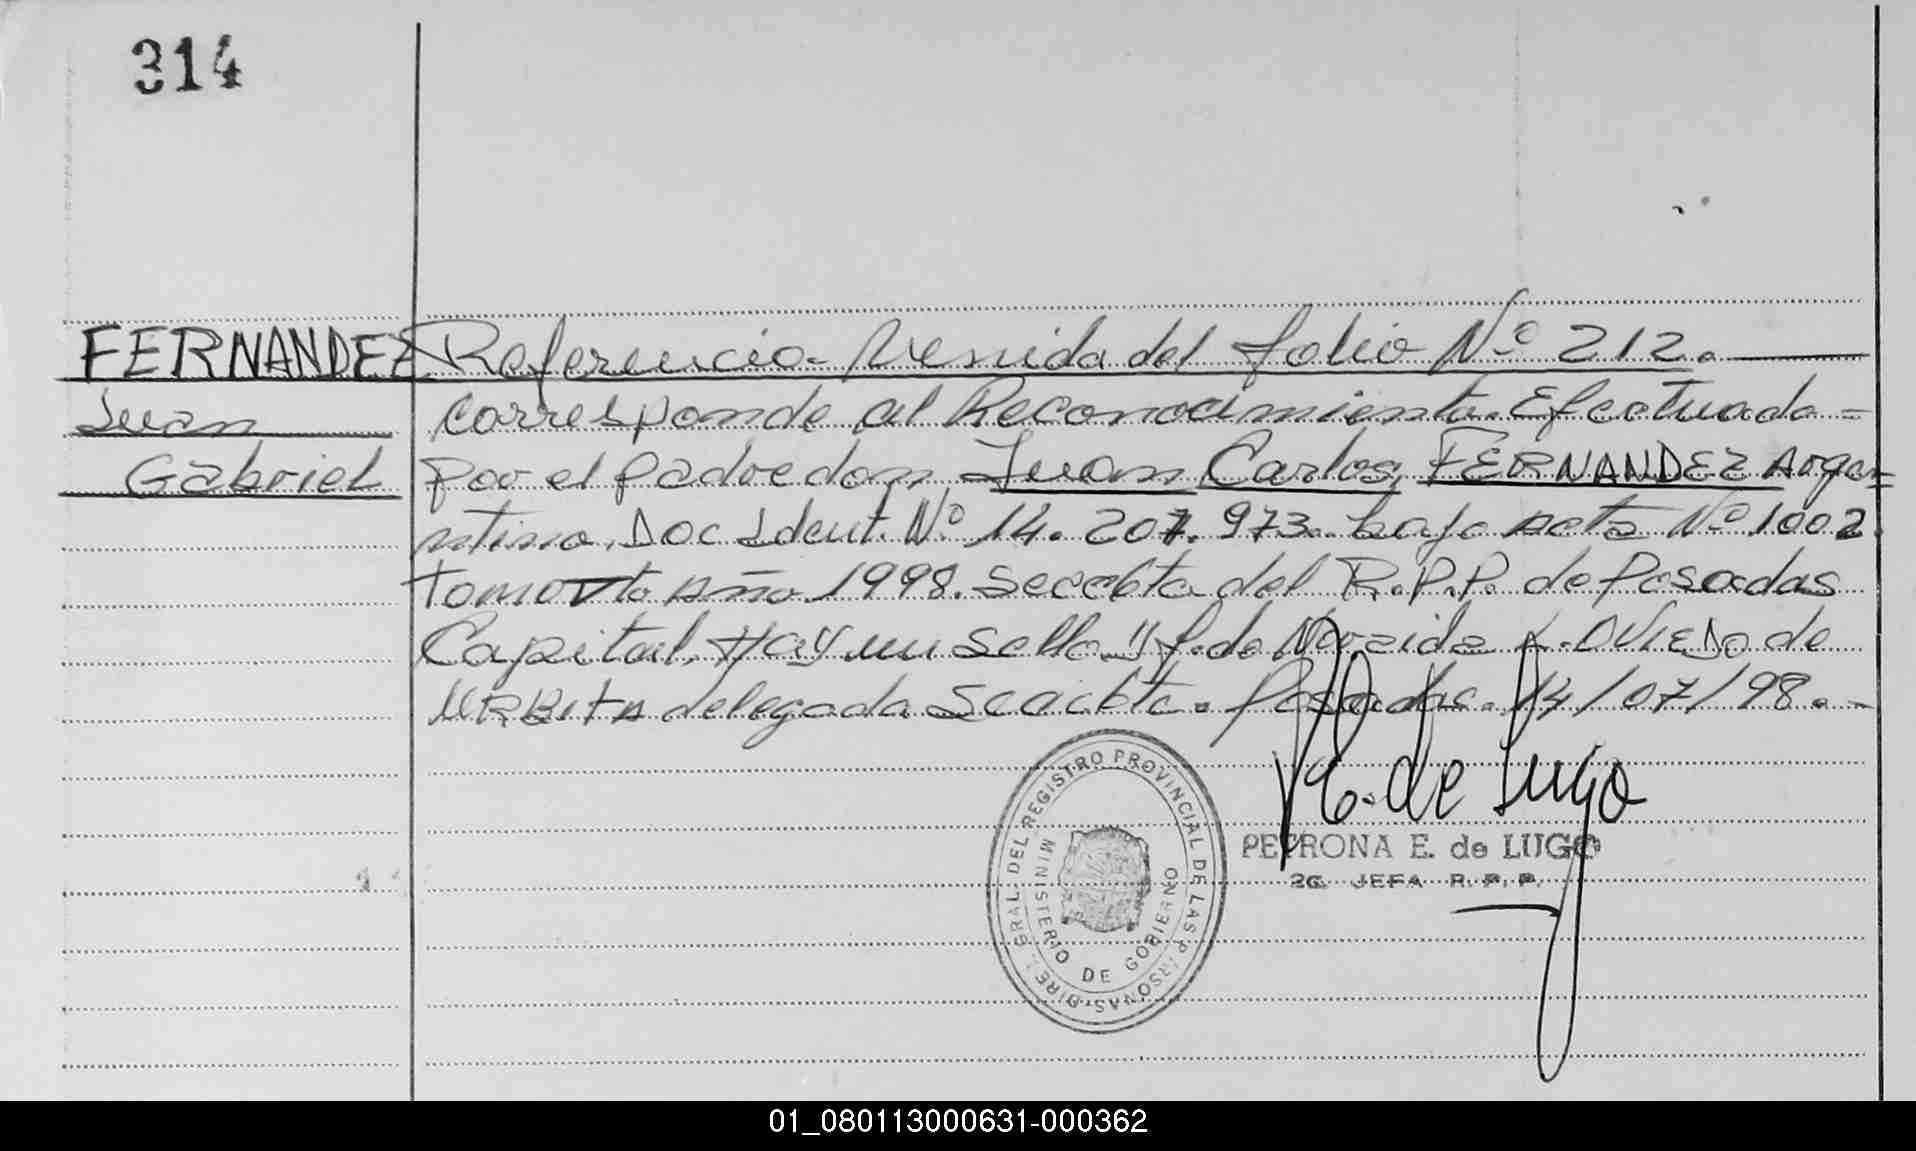 314
FERNANDEZ
Juan
Gabriel
Referencia Venida del folio Nº 212.
corresponde al Reconocimiento Efectuado =
por el padre don Juan Carlos FERNANDEZ Arge=
ntino. Doc Ident. Nº 14.207.973. bajo Acta Nº 1002
tomo Vto Año 1998. Seccbta del R.P.P. de Posadas
Capital. Hay un sello y f. de OVIEDO de
URBITA delegada Posadas. 14/07/98.-
P.E. de Lugo
PETRONA E. de LUGO
2ª JEFA R.P.P.
DIREC. GRAL. DEL REGISTRO PROVINCIAL DE LAS PERSONAS
MINISTERIO DE GOBIERNO
01_080113000631-000362